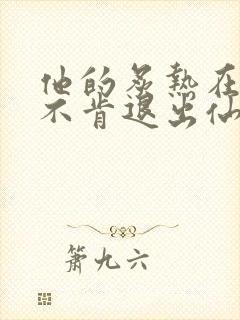 他的炙热在
不肯退出仙
箫九六